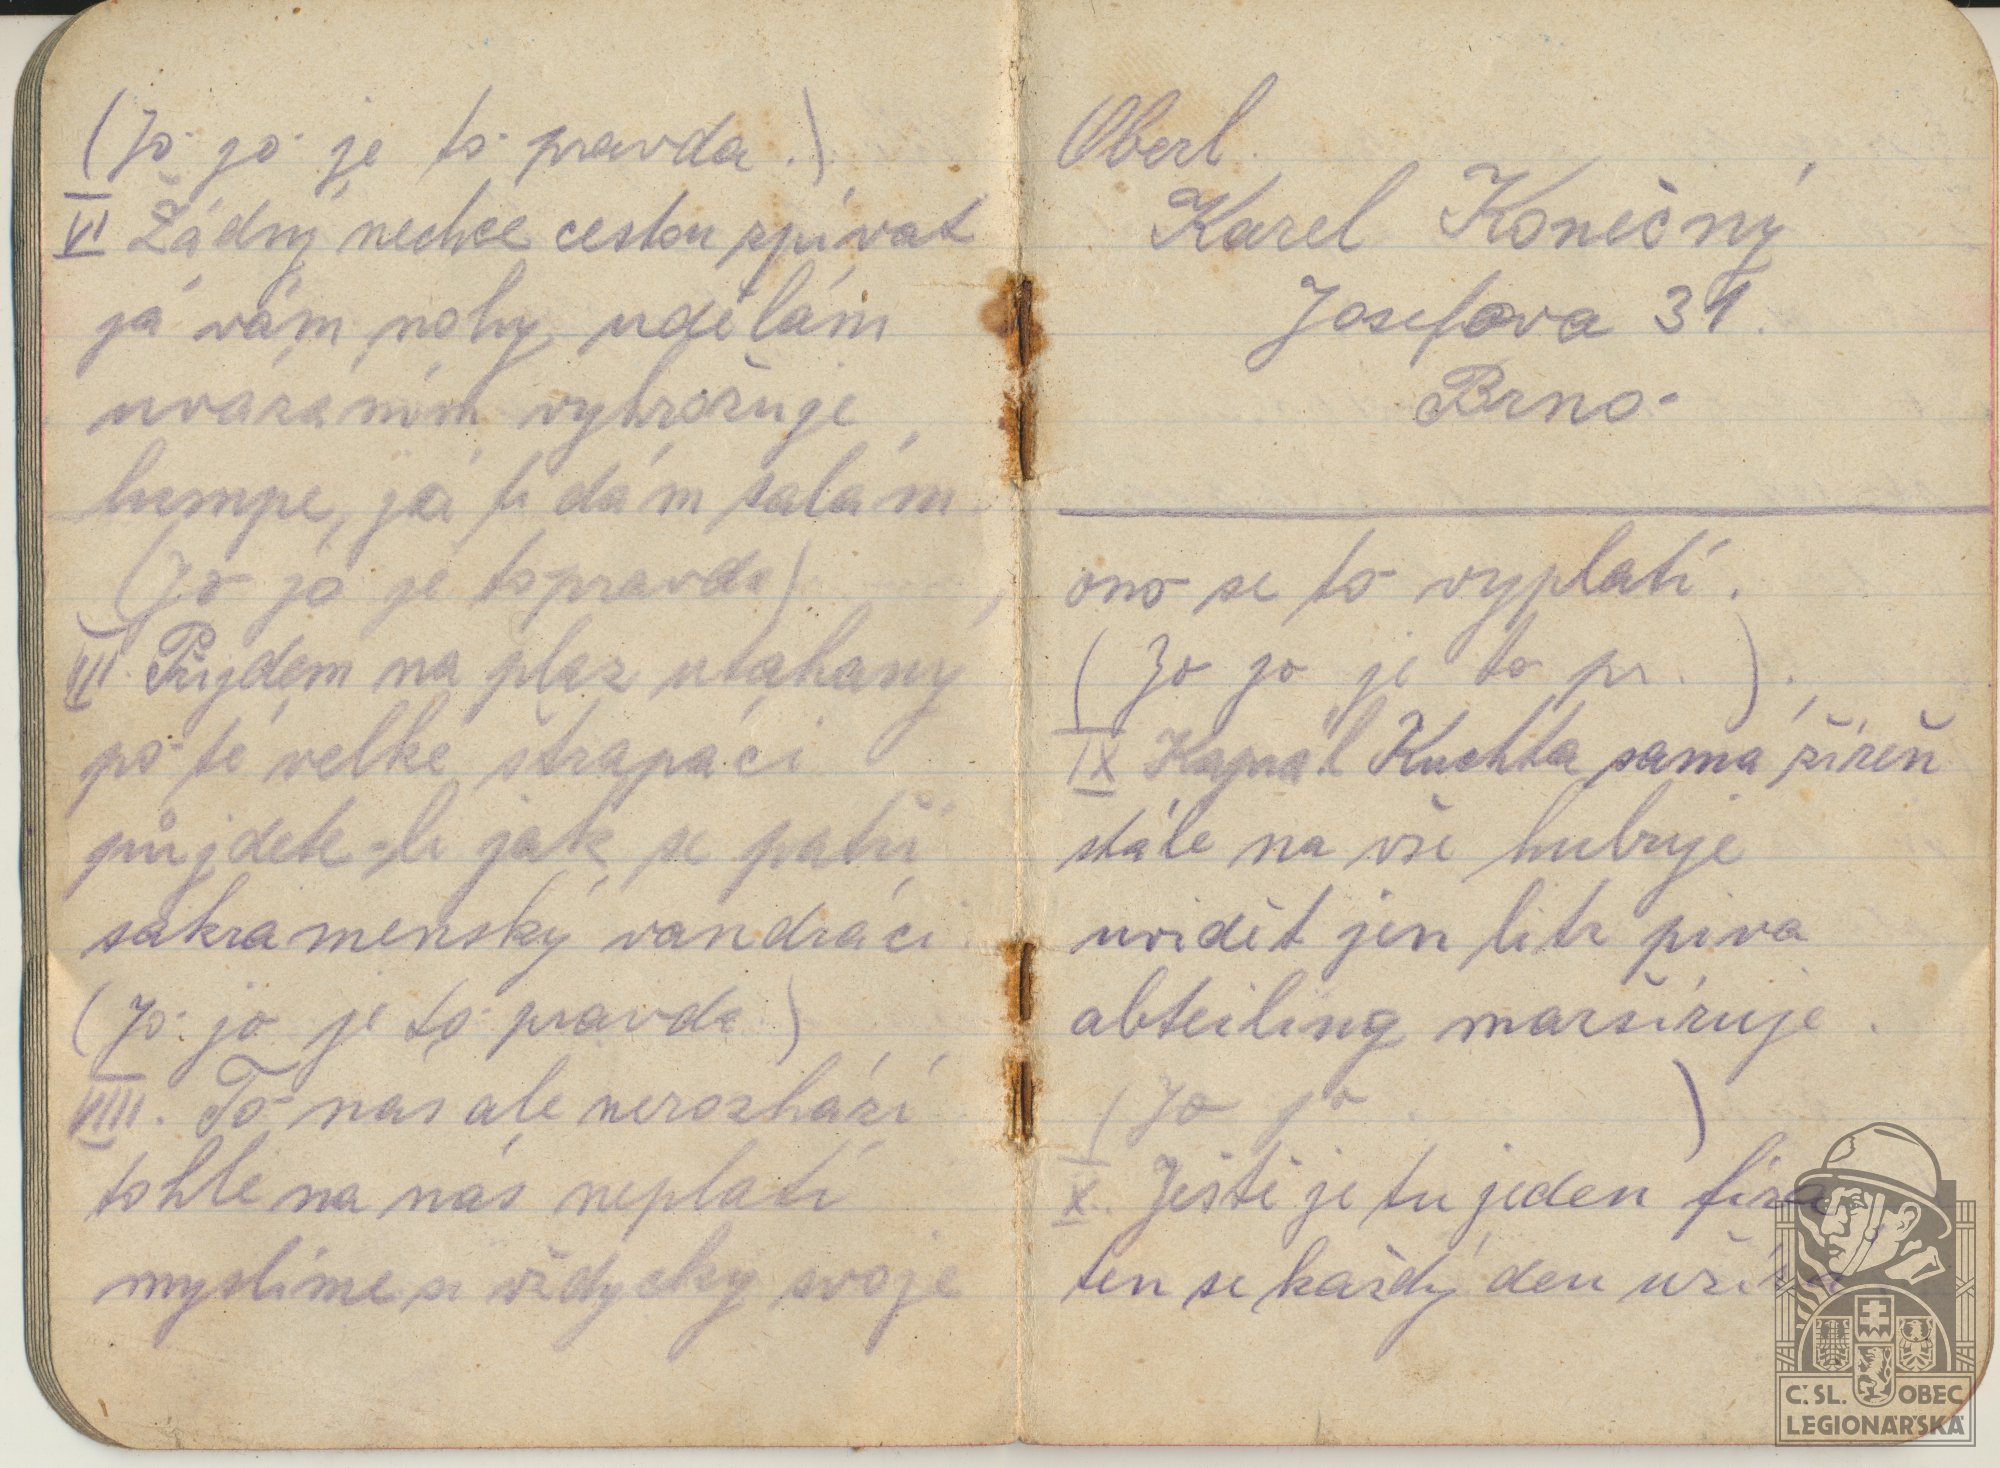 (Jo jo je to pravda.)
VI Žádný nechce cestou zpívat
já vám nohy udělám
uvázáním vyhrožuje
lumpe, já ti dám salám.
(Jo jo je to pravda)
VII. Přijdem na plaz utahaný
po té velké štrapáci
půjdete-li jak se patří
sakramenský vandráci.
(Jo jo je to pravda)
VIII. To nás ale nerozhází
tohle na nás neplatí
myslíme si vždycky svoje
Oberl.
Karel Konečný
Josefova 31.
Brno
ono se to vyplatí.
(Jo jo je to pr.).
IX Kaprál Kuchta samá žízeň
stále na vše hubuje
uvidět jen litr piva
abteiling maršíruje.
(Jo jo. )
X. Ješti je tu jeden
ten se každý den
Č. SL. OBEC
LEGIONÁŘSKÁ